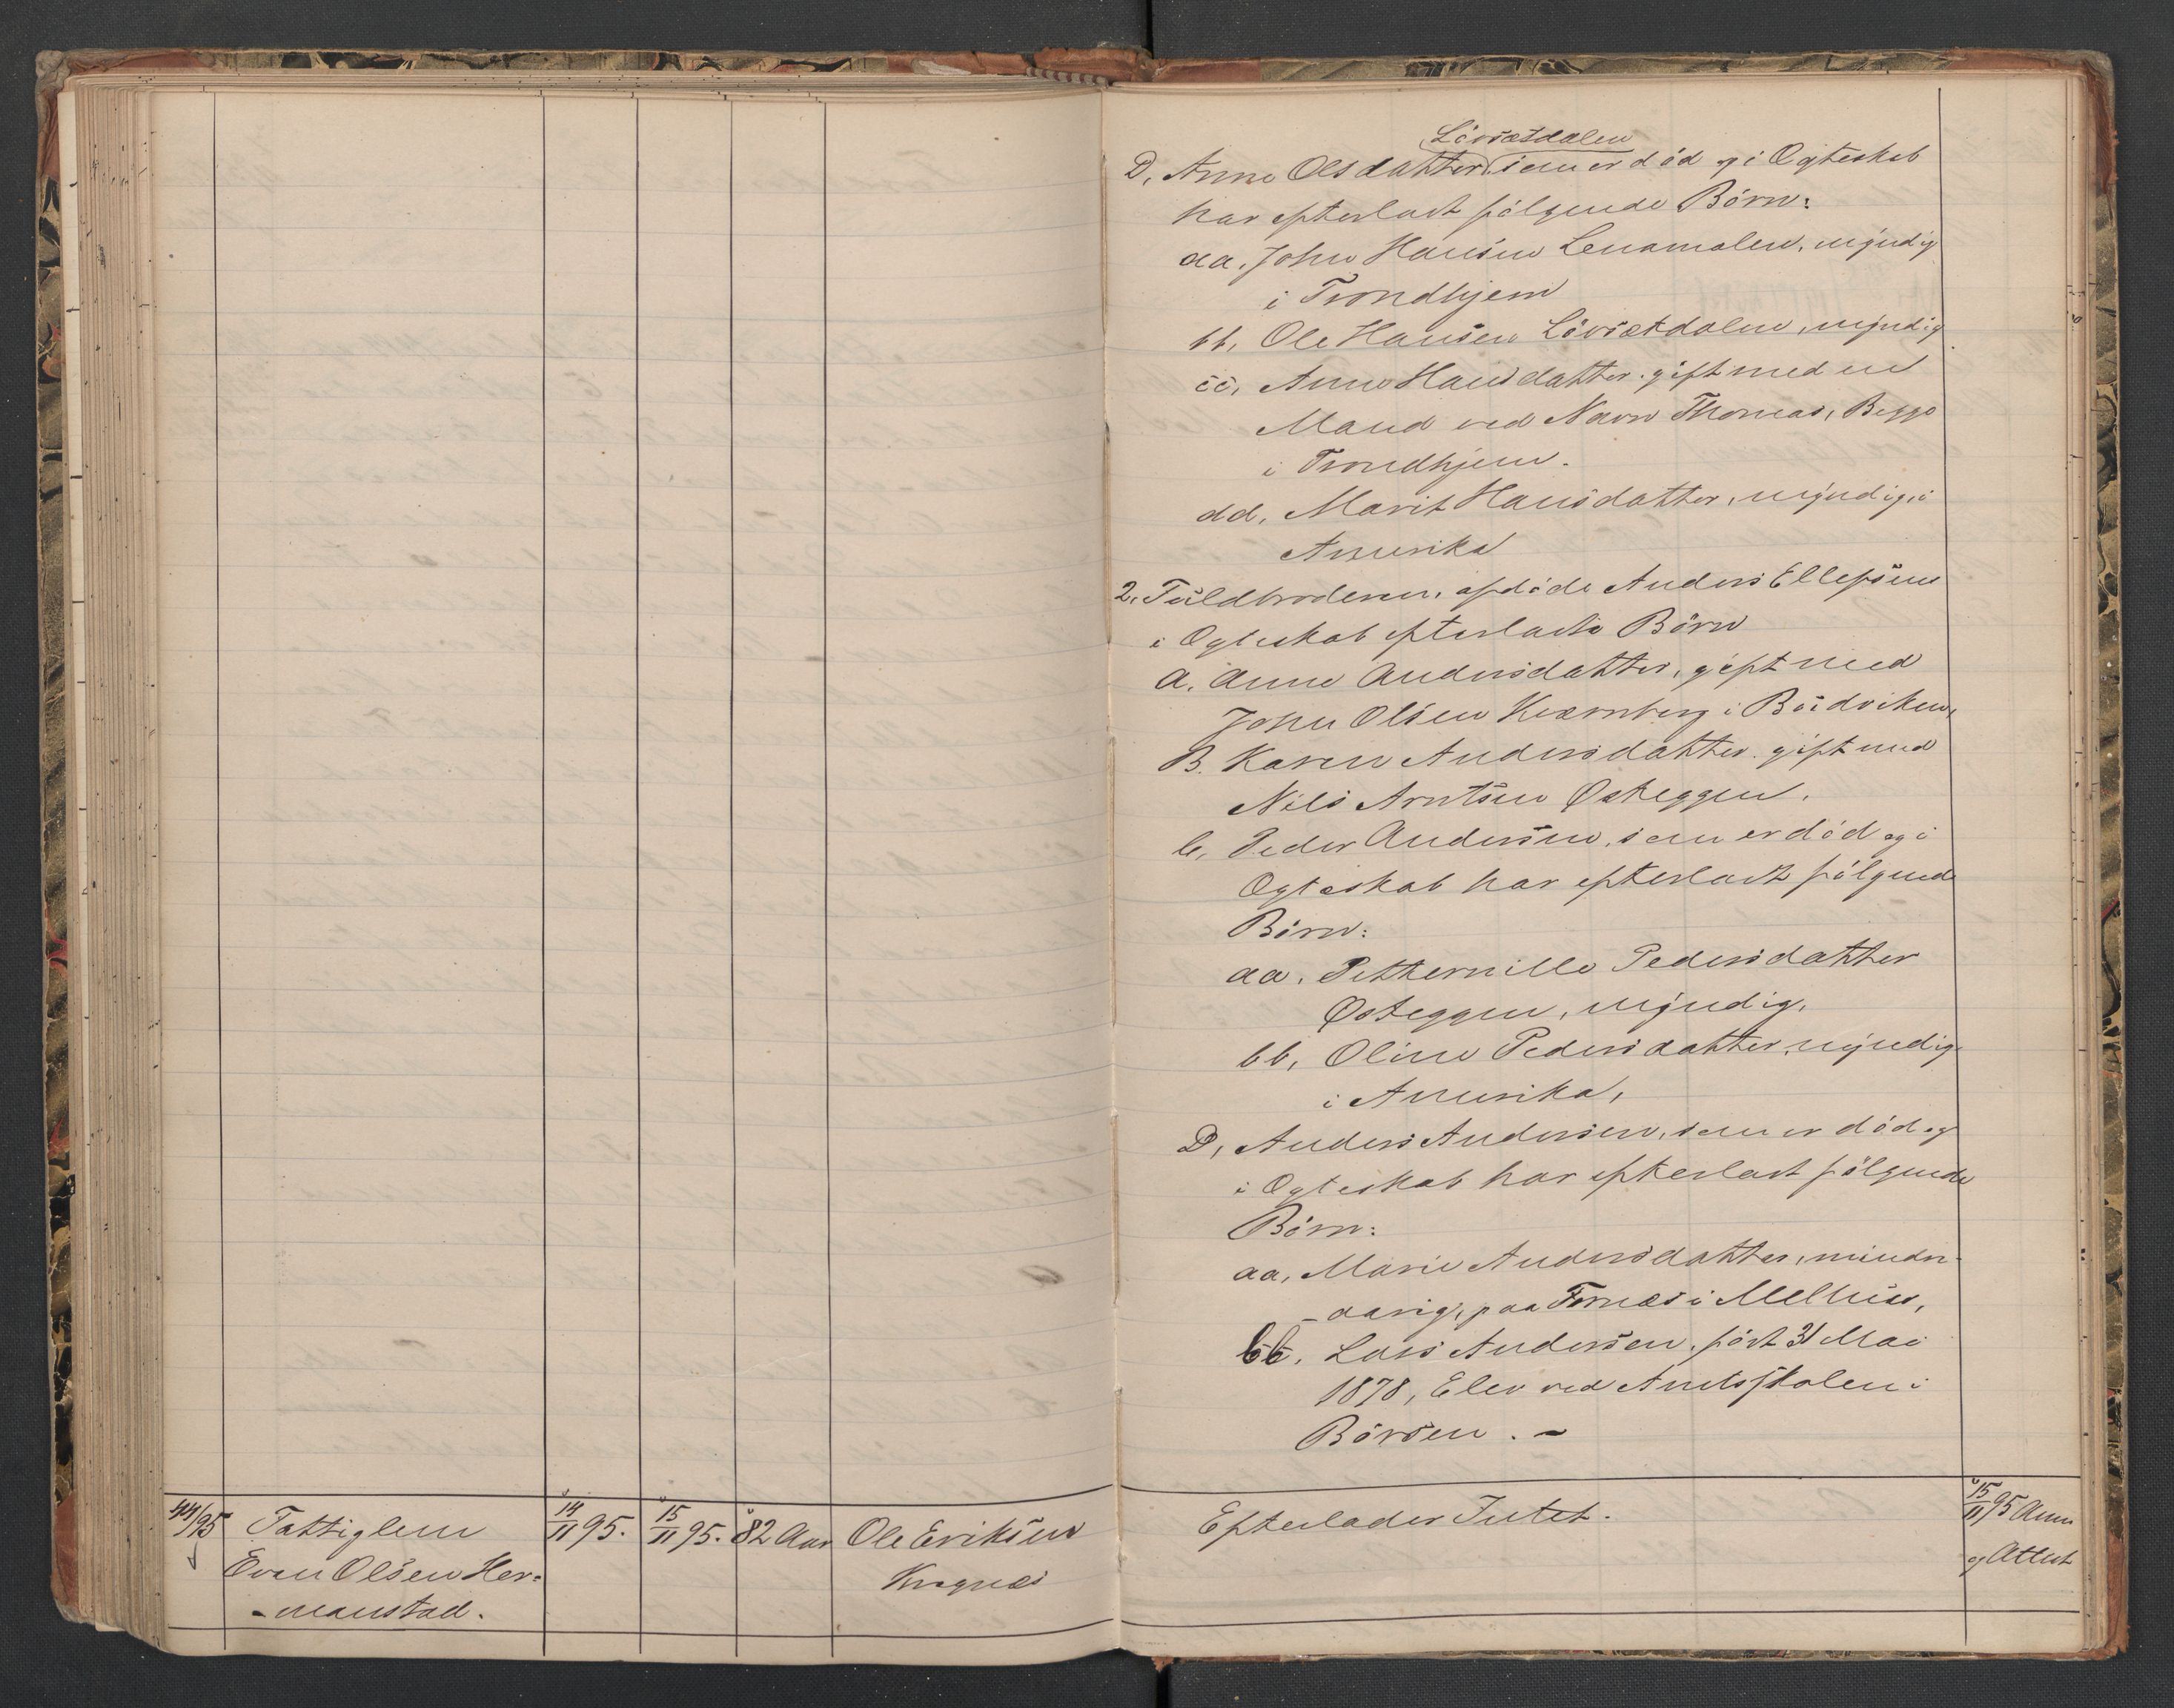 44/95
Fattiglem
Even Olsen Her=
-manstad.
14/11 95.
15/11 95.
82 Aar
Ole Eriksen
Krognæs
Lövsetdalen
D, Anne Olsdatter som er död og i Ægteskab
har efterladt fölgende Börn:
aa. John Hansen Lenamalen, myndig
i Trondhjem
bb, Ole Hansen Lövsetdalen, myndig
cc, Anne Hansdatter, gift med en
Mand ved Navn Thomas, Begge
i Trondhjem.
dd, Marit Hansdatter, myndig, i
Amerika
2, Fuldbroderen, afdöde Anders Ellefsens
i Ægteskab efterladte Börn
A. Anne Andersdatter, gift med
John Olsen Kværnberg i Budviken,
B. Karen Andersdatter, gift med
Nils Arntsen Østeggen,
C, Peder Andersen, som er död og i
Ægteskab har efterladt fölgende
Börn:
aa. Petternille Pedersdatter
Østeggen, myndig,
bb, Oline Pedersdatter, myndig,
i Amerika,
D, Anders Andersen, som er död og
i Ægteskab har efterladt fölgende
Börn:
aa, Marie Andersdatter, mindre-
-aarig, paa Fornæs i Melhus,
bb. Lars Andersen, födt 31 Mai
1878, Elev ved Amtsskolen i
Börsen. -
Efterlader Intet.
15/11 95 Anm
og Attest